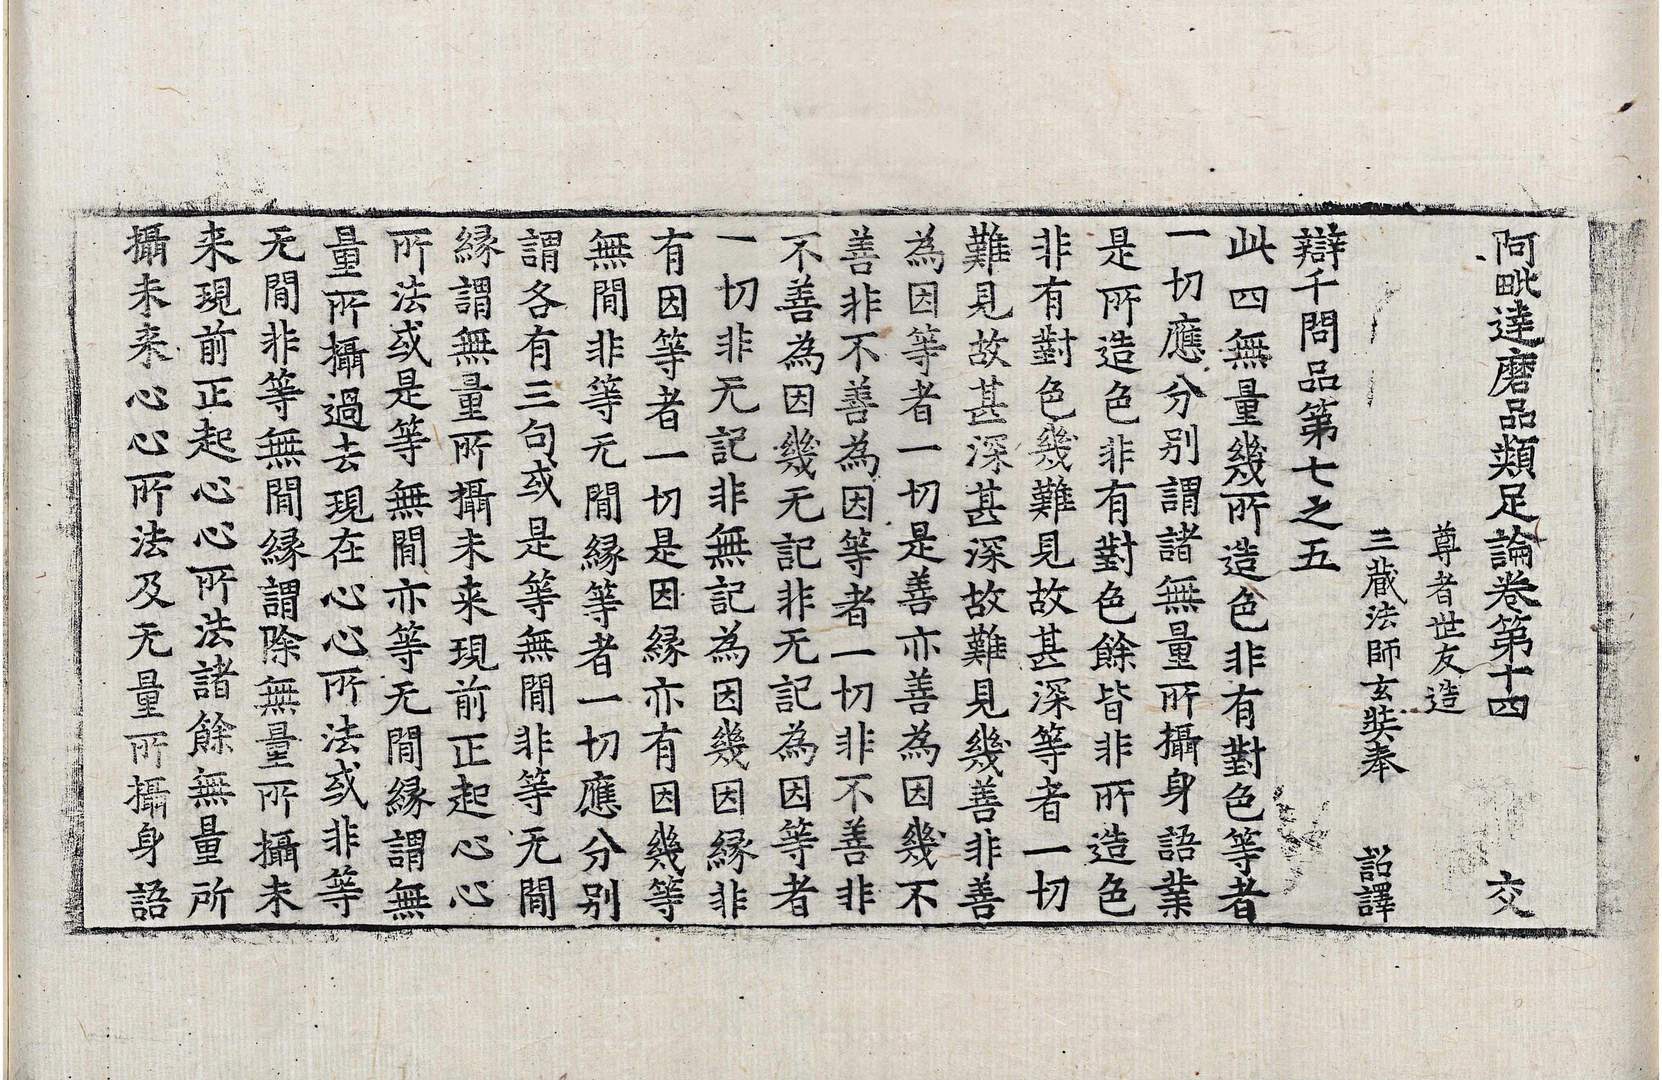 阿毗達磨品類足論卷第十四 交
尊者世友造
三藏法師玄奘奉 詔譯
辯千問品第七之五
此四無量幾所造色非有對色等者
一切應分別謂諸無量所攝身語業
是所造色非有對色餘皆非所造色
非有對色幾難見故甚深等者一切
難見故甚深甚深故難見幾善非善
為因等者一切是善亦善為因幾不
善非不善為因等者一切非不善非
不善為因幾无記非无記為因等者
一切非无記非無記為因幾因緣非
有因等者一切是因緣亦有因幾等
無間非等无間緣等者一切應分別
謂各有三句或是等無間非等无間
緣謂無量所攝未来現前正起心心
所法或是等無間亦等无間緣謂無
量所攝過去現在心心所法或非等
无間非等無間緣謂除無量所攝未
来現前正起心心所法諸餘無量所
攝未来心心所法及无量所攝身語